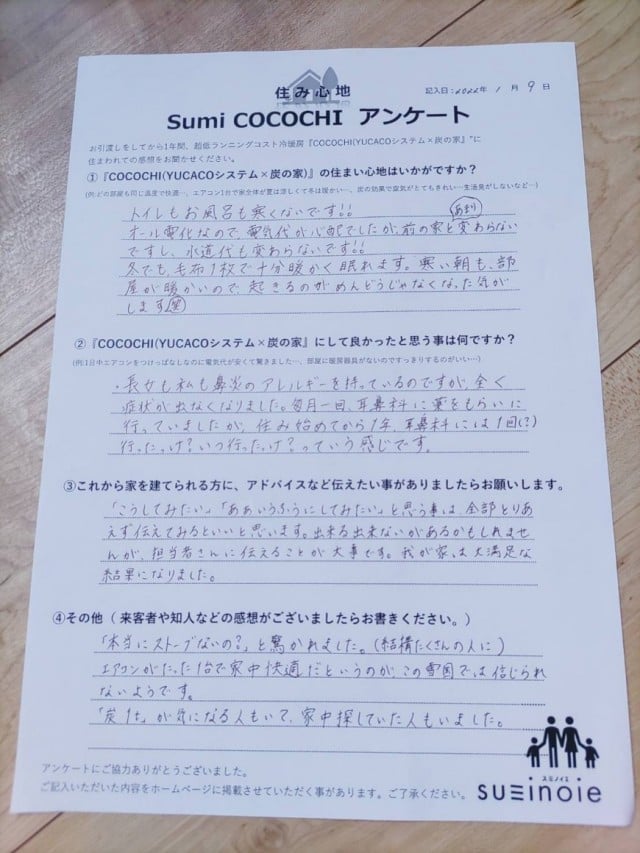 住み心地
記入日:2022年 1月 9日
Sumi COCOCHI アンケート
お引渡しをしてから1年間、超低ランニングコスト冷暖房『COCOCHI(YUCACOシステム×炭の家』"に
住まわれての感想をお聞かせください。
①『COCOCHI(YUCACOシステム×炭の家)』の住まい心地はいかがですか?
(例:どの部屋も同じ温度で快適…、エアコン1台で家全体が夏は涼しくて冬は暖かい…、炭の効果で空気がとてもきれい…生活臭がしないなど…)
トイレもお風呂も寒くないです!!
オール電化なので、電気代が心配でしたが、前の家とあまり変わらない
ですし、水道代も変わらないです!!
冬でも、毛布1枚で十分暖かく眠れます。寒い朝も、部
屋が暖かいので、起きるのがめんどうじゃなくなった気が
します(笑)
②『COCOCHI(YUCACOシステム×炭の家』にして良かったと思う事は何ですか?
(例:1日中エアコンをつけっぱなしなのに電気代が安くて驚きました…、部屋に暖房器具がないのですっきりするのがいい…)
・長女も私も鼻炎のアレルギーを持っているのですが、全く
症状が出なくなりました。毎月一回、耳鼻科に薬をもらいに
行っていましたが、住み始めてから1年、耳鼻科には1回(?)
行ったっけ?いつ行ったっけ?っていう感じです。
③これから家を建てられる方に、アドバイスなど伝えたい事がありましたらお願いします。
「こうしてみたい」「ああいうふうにしてみたい」と思う事は、全部とりあ
えず伝えてみるといいと思います。出来る出来ないがあるかもしれませ
んが、担当者さんに伝えることが大事です。我が家は大満足な
結果になりました。
④その他(来客者や知人などの感想がございましたらお書きください。)
「本当にストーブないの?」と驚かれました。(結構たくさんの人に)
エアコンがたった1台で家中快適だというのが、この雪国では信じられ
ないようです。
「炭」が気になる人もいて、家中探していた人もいました。
アンケートにご協力ありがとうございました。
ご記入いただいた内容をホームページに掲載させていただく事があります。ご了承ください。
スミノイエ
suminoie